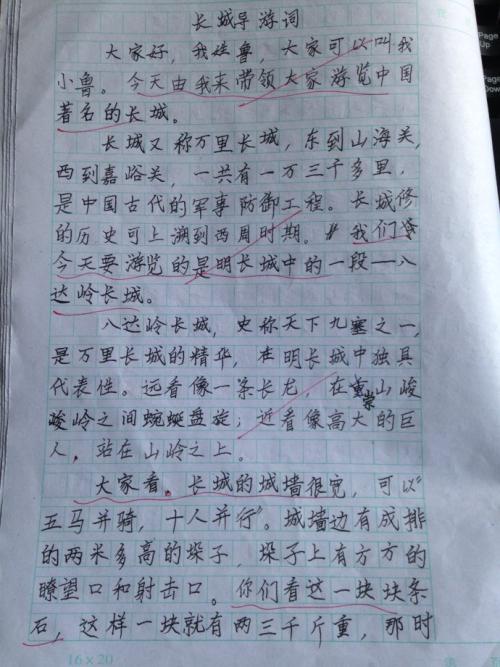 长城导游词
大家好，我姓鲁，大家可以叫我
小鲁。今天由我来带领大家游览中国
著名的长城。
长城又称万里长城，东到山海关，
西到嘉峪关，一共有一万三千多里，
是中国古代的军事防御工程。长城修
的历史可上溯到西周时期。我们
今天要游览的是明长城中的一段——八
达岭长城。
八达岭长城，史称天下九塞之一，
是万里长城的精华，在明长城中独具
代表性。远看像一条长龙，在崇山峻
峻岭之间蜿蜒盘旋；近看像高大的巨
人，站在山岭之上。
大家看。长城的城墙很宽，可以“
五马并骑，十人并行”。城墙边有成排
的两米多高的垛子，垛子上有方方的
瞭望口和射击口。你们看这一块块条
石，这样一块就有两三千斤重，那时
16×20
Page
Up
Page
Down